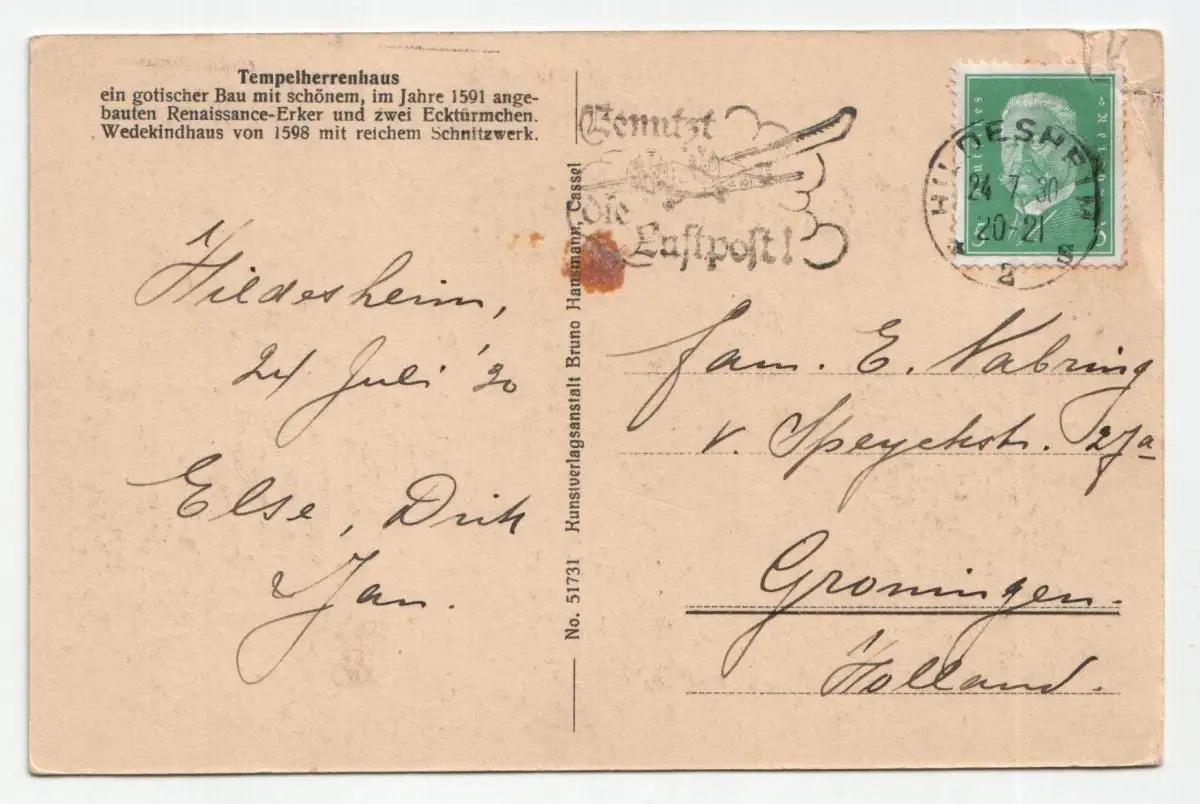 Tempelherrenhaus
ein gotischer Bau mit schönem, im Jahre 1591 ange-
bauten Renaissance-Erker und zwei Ecktürmchen.
Wedekindhaus von 1598 mit reichem Schnitzwerk.
Hildesheim,
24 Juli '30
Else, Dirk
Jan.
No. 51731 Kunstverlagsanstalt Bruno Hausmann, Cassel
Benutzt
die
Luftpost!
HILDESHEIM
24 7 30
20-21
* 2 s
5 5
Fam. E. Nabring
v. Speyckstr. 27a
Groningen.
Holland.